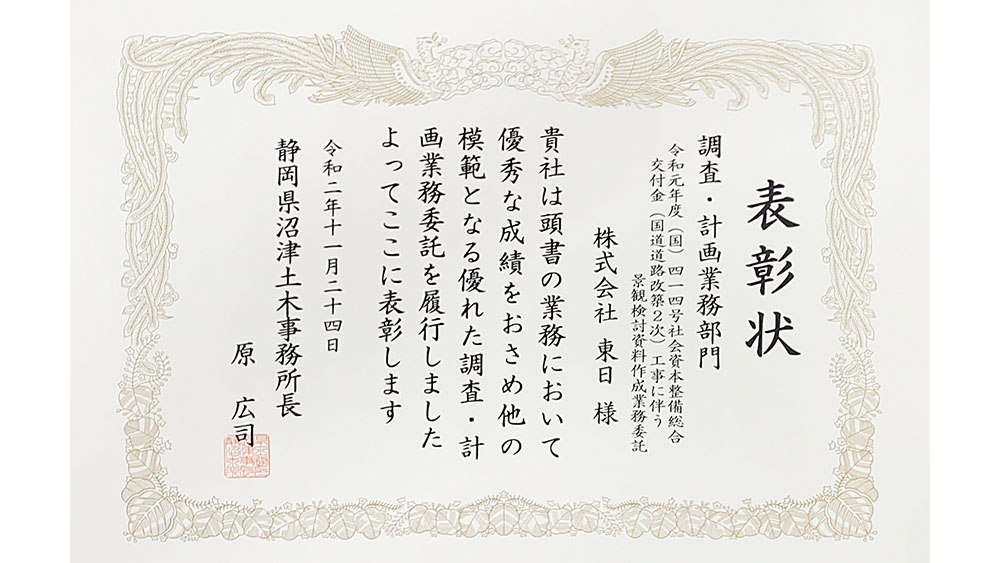 表彰状
調査・計画業務部門
令和元年度（国）四一四号社会資本整備総合
交付金（国道道路改築２次）工事に伴う
景観検討資料作成業務委託
株式会社 東日 様
貴社は頭書の業務において
優秀な成績をおさめ他の
模範となる優れた調査・計
画業務委託を履行しました
よってここに表彰します
令和二年十一月二十四日
静岡県沼津土木事務所長
原 広司